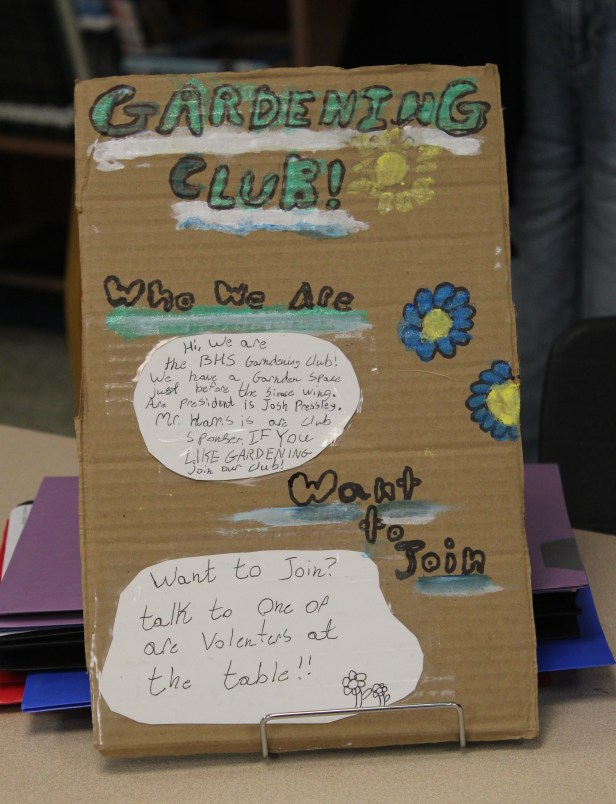 GARDENING
CLUB!
Who We Are
Hi, we are
the BHS Garndening Club!
We have a Garnden Space
just before the Simac wing.
Are president is Josh Pressley.
Mr. Harris is are club
Sponser. IF YOU
LIKE GARDENING
Join our club!
Want
to
Join
Want to Join?
talk to One of
are Volenters at
the table!!